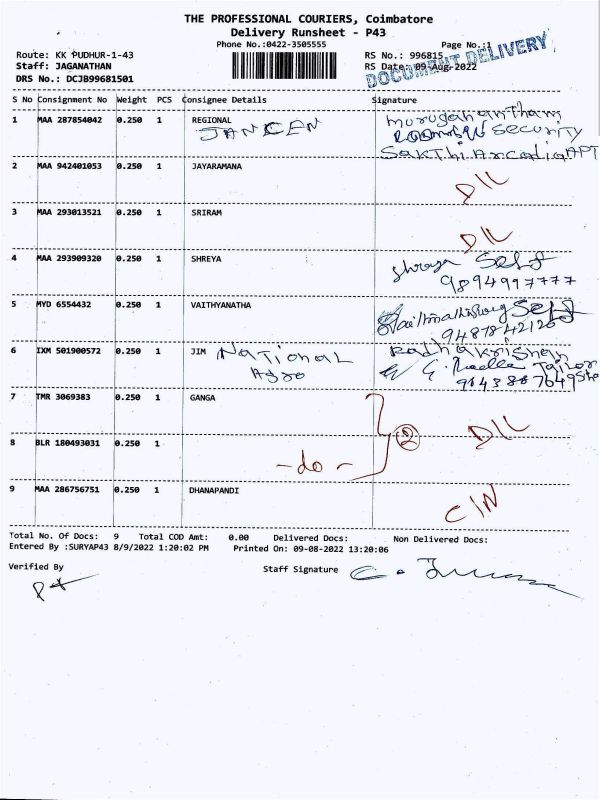 THE PROFESSIONAL COURIERS, Coimbatore
Delivery Runsheet - P43
Phone No.:0422-3505555
Page No.:1
Route: KK PUDHUR-1-43
RS No.: 996815
DOCUMENT DELIVERY
Staff: JAGANATHAN
RS Date: 09-Aug-2022
DRS No.: DCJB99681501
S No Consignment No Weight PCS Consignee Details Signature
1 MAA 287854042 0.250 1 REGIONAL
JANCEN
Muruganantham
security
Sakthi Arcadia APT
2 MAA 942401053 0.250 1 JAYARAMANA
D/L
3 MAA 293013521 0.250 1 SRIRAM
D/L
4 MAA 293909320 0.250 1 SHREYA
Shreya Self
9894997777
5 MYD 6554432 0.250 1 VAITHYANATHA
Self
9487842126
6 IXM 501900572 0.250 1 JIM National
Agro
Radhakrishnan
Tailor
7 TMR 3069383 0.250 1 GANGA
D/L
2
8 BLR 180493031 0.250 1
-do-
9 MAA 286756751 0.250 1 DHANAPANDI
C/N
Total No. Of Docs: 9 Total COD Amt: 0.00 Delivered Docs: Non Delivered Docs:
Entered By :SURYAP43 8/9/2022 1:20:02 PM Printed On: 09-08-2022 13:20:06
Verified By
Staff Signature